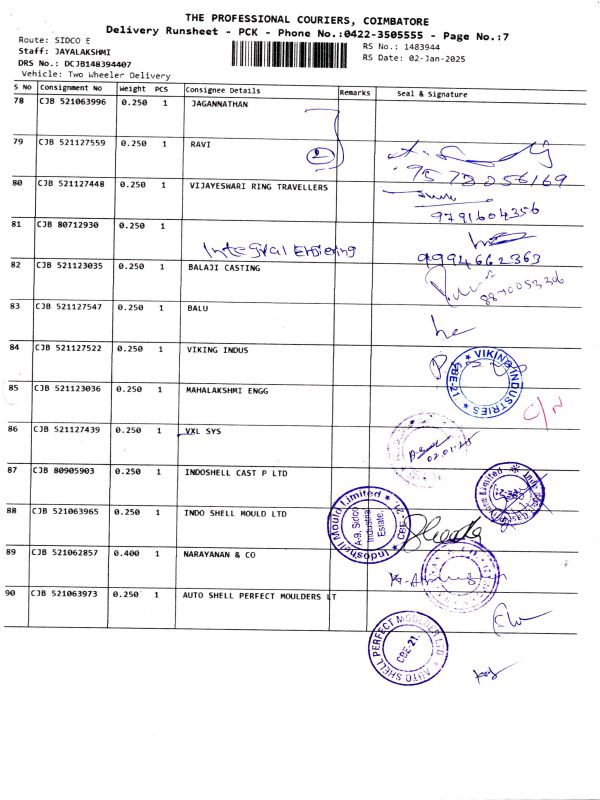 THE PROFESSIONAL COURIERS, COIMBATORE
Delivery Runsheet - PCK - Phone No.:0422-3505555 - Page No.:7
Route: SIDCO E
RS No.: 1483944
Staff: JAYALAKSHMI
RS Date: 02-Jan-2025
DRS No.: DCJB148394407
Vehicle: Two Wheeler Delivery
S No Consignment No Weight PCS Consignee Details Remarks Seal & Signature
78 CJB 521063996 0.250 1 JAGANNATHAN
79 CJB 521127559 0.250 1 RAVI
2
9578056169
80 CJB 521127448 0.250 1 VIJAYESWARI RING TRAVELLERS
9791604356
81 CJB 80712930 0.250 1
Integral
9994662363
82 CJB 521123035 0.250 1 BALAJI CASTING
8870053306
83 CJB 521127547 0.250 1 BALU
84 CJB 521127522 0.250 1 VIKING INDUS
VIKING INDUSTRIES CBE-21
85 CJB 521123036 0.250 1 MAHALAKSHMI ENGG
C/N
86 CJB 521127439 0.250 1 VXL SYS
02.01.25
87 CJB 80905903 0.250 1 INDOSHELL CAST P LTD
88 CJB 521063965 0.250 1 INDO SHELL MOULD LTD
Indoshell Mould Limited CBE-21.
A-9, Sidco
Industrial
Estate,
89 CJB 521062857 0.400 1 NARAYANAN & CO
90 CJB 521063973 0.250 1 AUTO SHELL PERFECT MOULDERS LT
AUTO SHELL PERFECT MOULDERS LTD.
CBE-21.